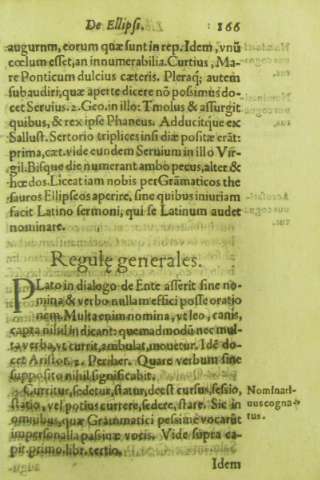 De Ellipsi. 166
augurum, eorum quæ sunt in rep. Idem, vnũ
cœlum esset, an innumerabilia. Curtius, Ma-
re Ponticum dulcius cæteris. Pleraq; autem
subaudiri, quæ aperte dicere nõ possimus do-
cet Seruius. 2. Geo. in illo: Tmolus & assurgit
quibus, & rex ipse Phaneus. Adducitque ex
Sallust. Sertorio triplices insidiæ positæ erãt:
prima, cæt. vide eundem Seruium in illo Vir-
gil. Bisque die numerant ambo pecus, alter &
hœdos. Liceat iam nobis per Grãmaticos the
sauros Ellipseos aperire, sine quibus iniuriam
facit Latino sermoni, qui se Latinum audet
nominare.
Regulę generales.
PLato in dialogo de Ente asserit sine no-
mina & verbo nullam effici posse oratio
nem. Multa enim nomina, vt leo, canis,
capra nihil indicant: quemadmodũ nec mul-
ta verba, vt currit, ambulat, mouetur. Idẽ do-
cet Aristot. 2. Periher. Quare verbum sine
supposito nihil significabit.
Curritur, sedetur, statur, deest cursus, sessio,
statio, vel potius currere, sedere, stare. Sic in
omnibus, quæ Grammatici pessime vocarũt
impersonalia passiuæ vocis. Vide supra ca-
pit. primo. lib. tertio.
Nominati-
uus cogna-
tus.
Idem